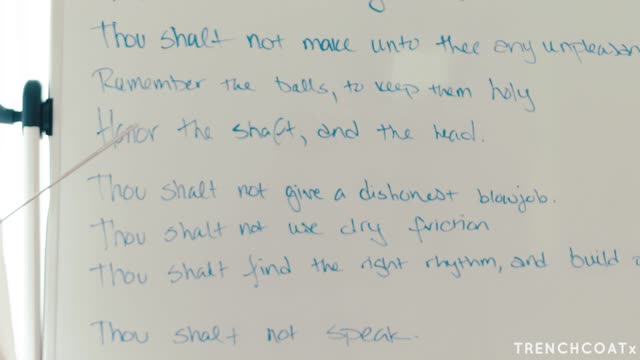 Thou shalt not make unto thee any
Remember the balls, to keep them holy
Honor the shaft, and the head.
Thou shalt not give a dishonest blowjob.
Thou shalt not use dry friction
Thou shalt find the right rhythm, and build
Thou shalt not speak.
TRENCHCOATx